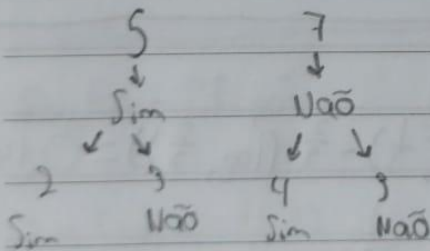 5 7
Sim Não
2 3 4 3
Sim Não Sim Não